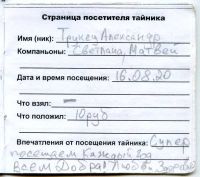 Страница посетителя тайника
Имя (ник): Александр
Компаньоны: Светлана, Матвей
Дата и время посещения: 16.08.20
Что взял: —
Что положил: 10 руб
Впечатления от посещения тайника: Супер
посещаем каждый год
Всем Добра! Любви, Здоровья